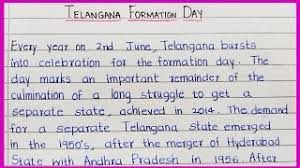 TELANGANA FORMATION DAY
Every year on 2nd June, Telangana bursts
into celebration for the formation day. The
day marks an important remainder of the
culmination of a long struggle to get a
separate state, achieved in 2014. The demand
for a separate Telangana state emerged
in the 1950's, after the merger of Hyderabad
State with Andhra Pradesh in 1956. After